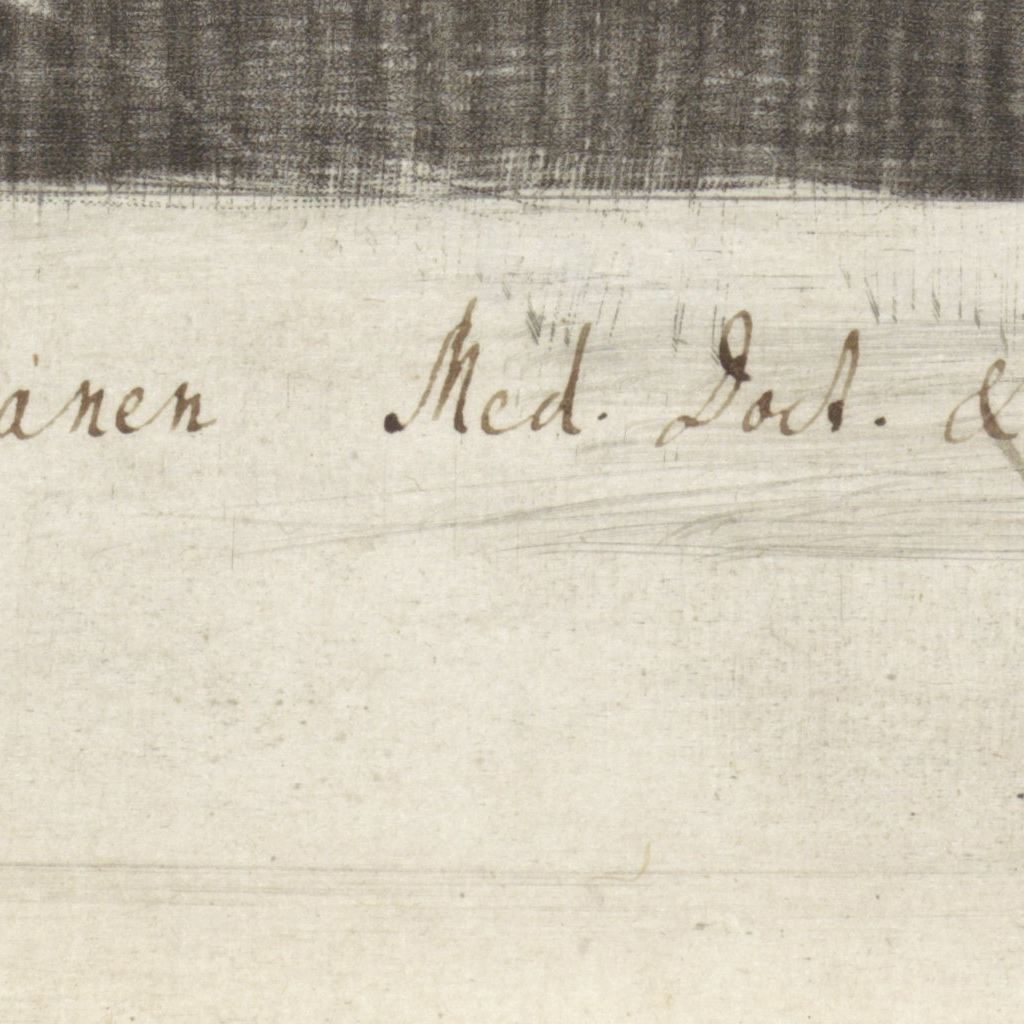 ánen Med. Doct. &